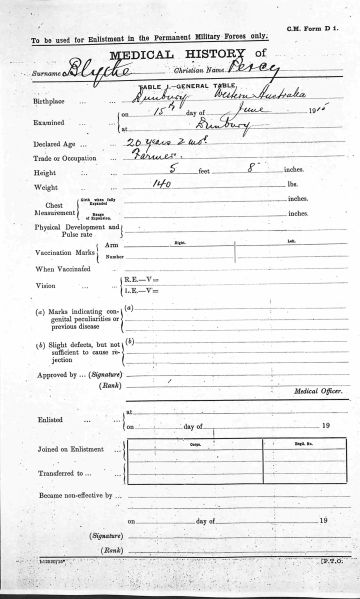 C.M. Form D 1.
To be used for Enlistment in the Permanent Military Forces only.
MEDICAL HISTORY of
Surname Blythe Christian Name Percy
TABLE I.—GENERAL TABLE.
Birthplace ... Bunbury Western Australia
Examined ... on 15th day of June 191
at Bunbury
Declared Age ... 20 years 2 mos.
Trade or Occupation Farmer.
Height ... 5 feet 8 inches.
Weight ... 140 lbs.
Chest Measurement Girth when fully Expanded inches.
Range of Expansion. inches.
Physical Development and Pulse rate
Vaccination Marks Arm Right. Left.
Number
When Vaccinated ...
Vision ... R.E.—V=
L.E.—V=
(a) Marks indicating congenital peculiarities or previous disease (a)
(b) Slight defects, but not sufficient to cause rejection (b)
Approved by ... (Signature)
(Rank)
Medical Officer.
Enlisted ... at
on day of 19
Joined on Enlistment ... Corps. Regtl. No.
Transferred to ...
Became non-effective by ...
on day of 19
(Signature)
(Rank)
[P.T.O.